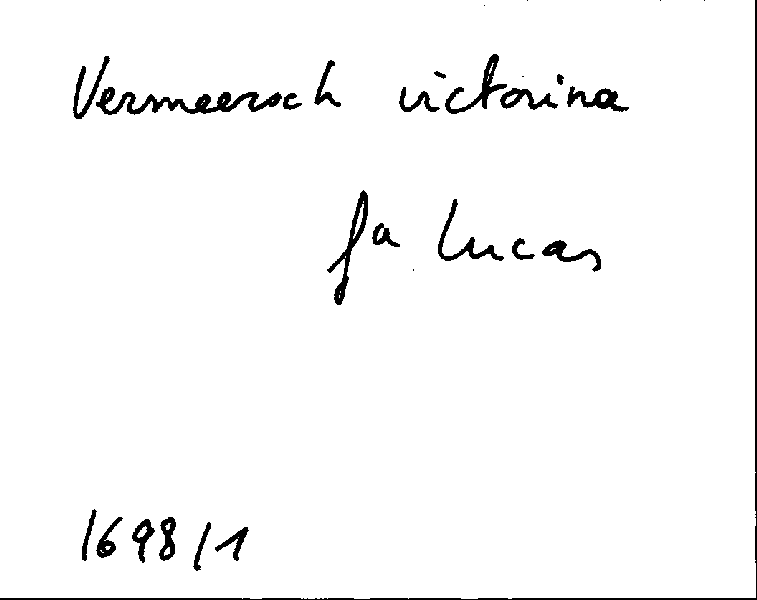 Vermeersch victorina
fa Lucas
1698/1